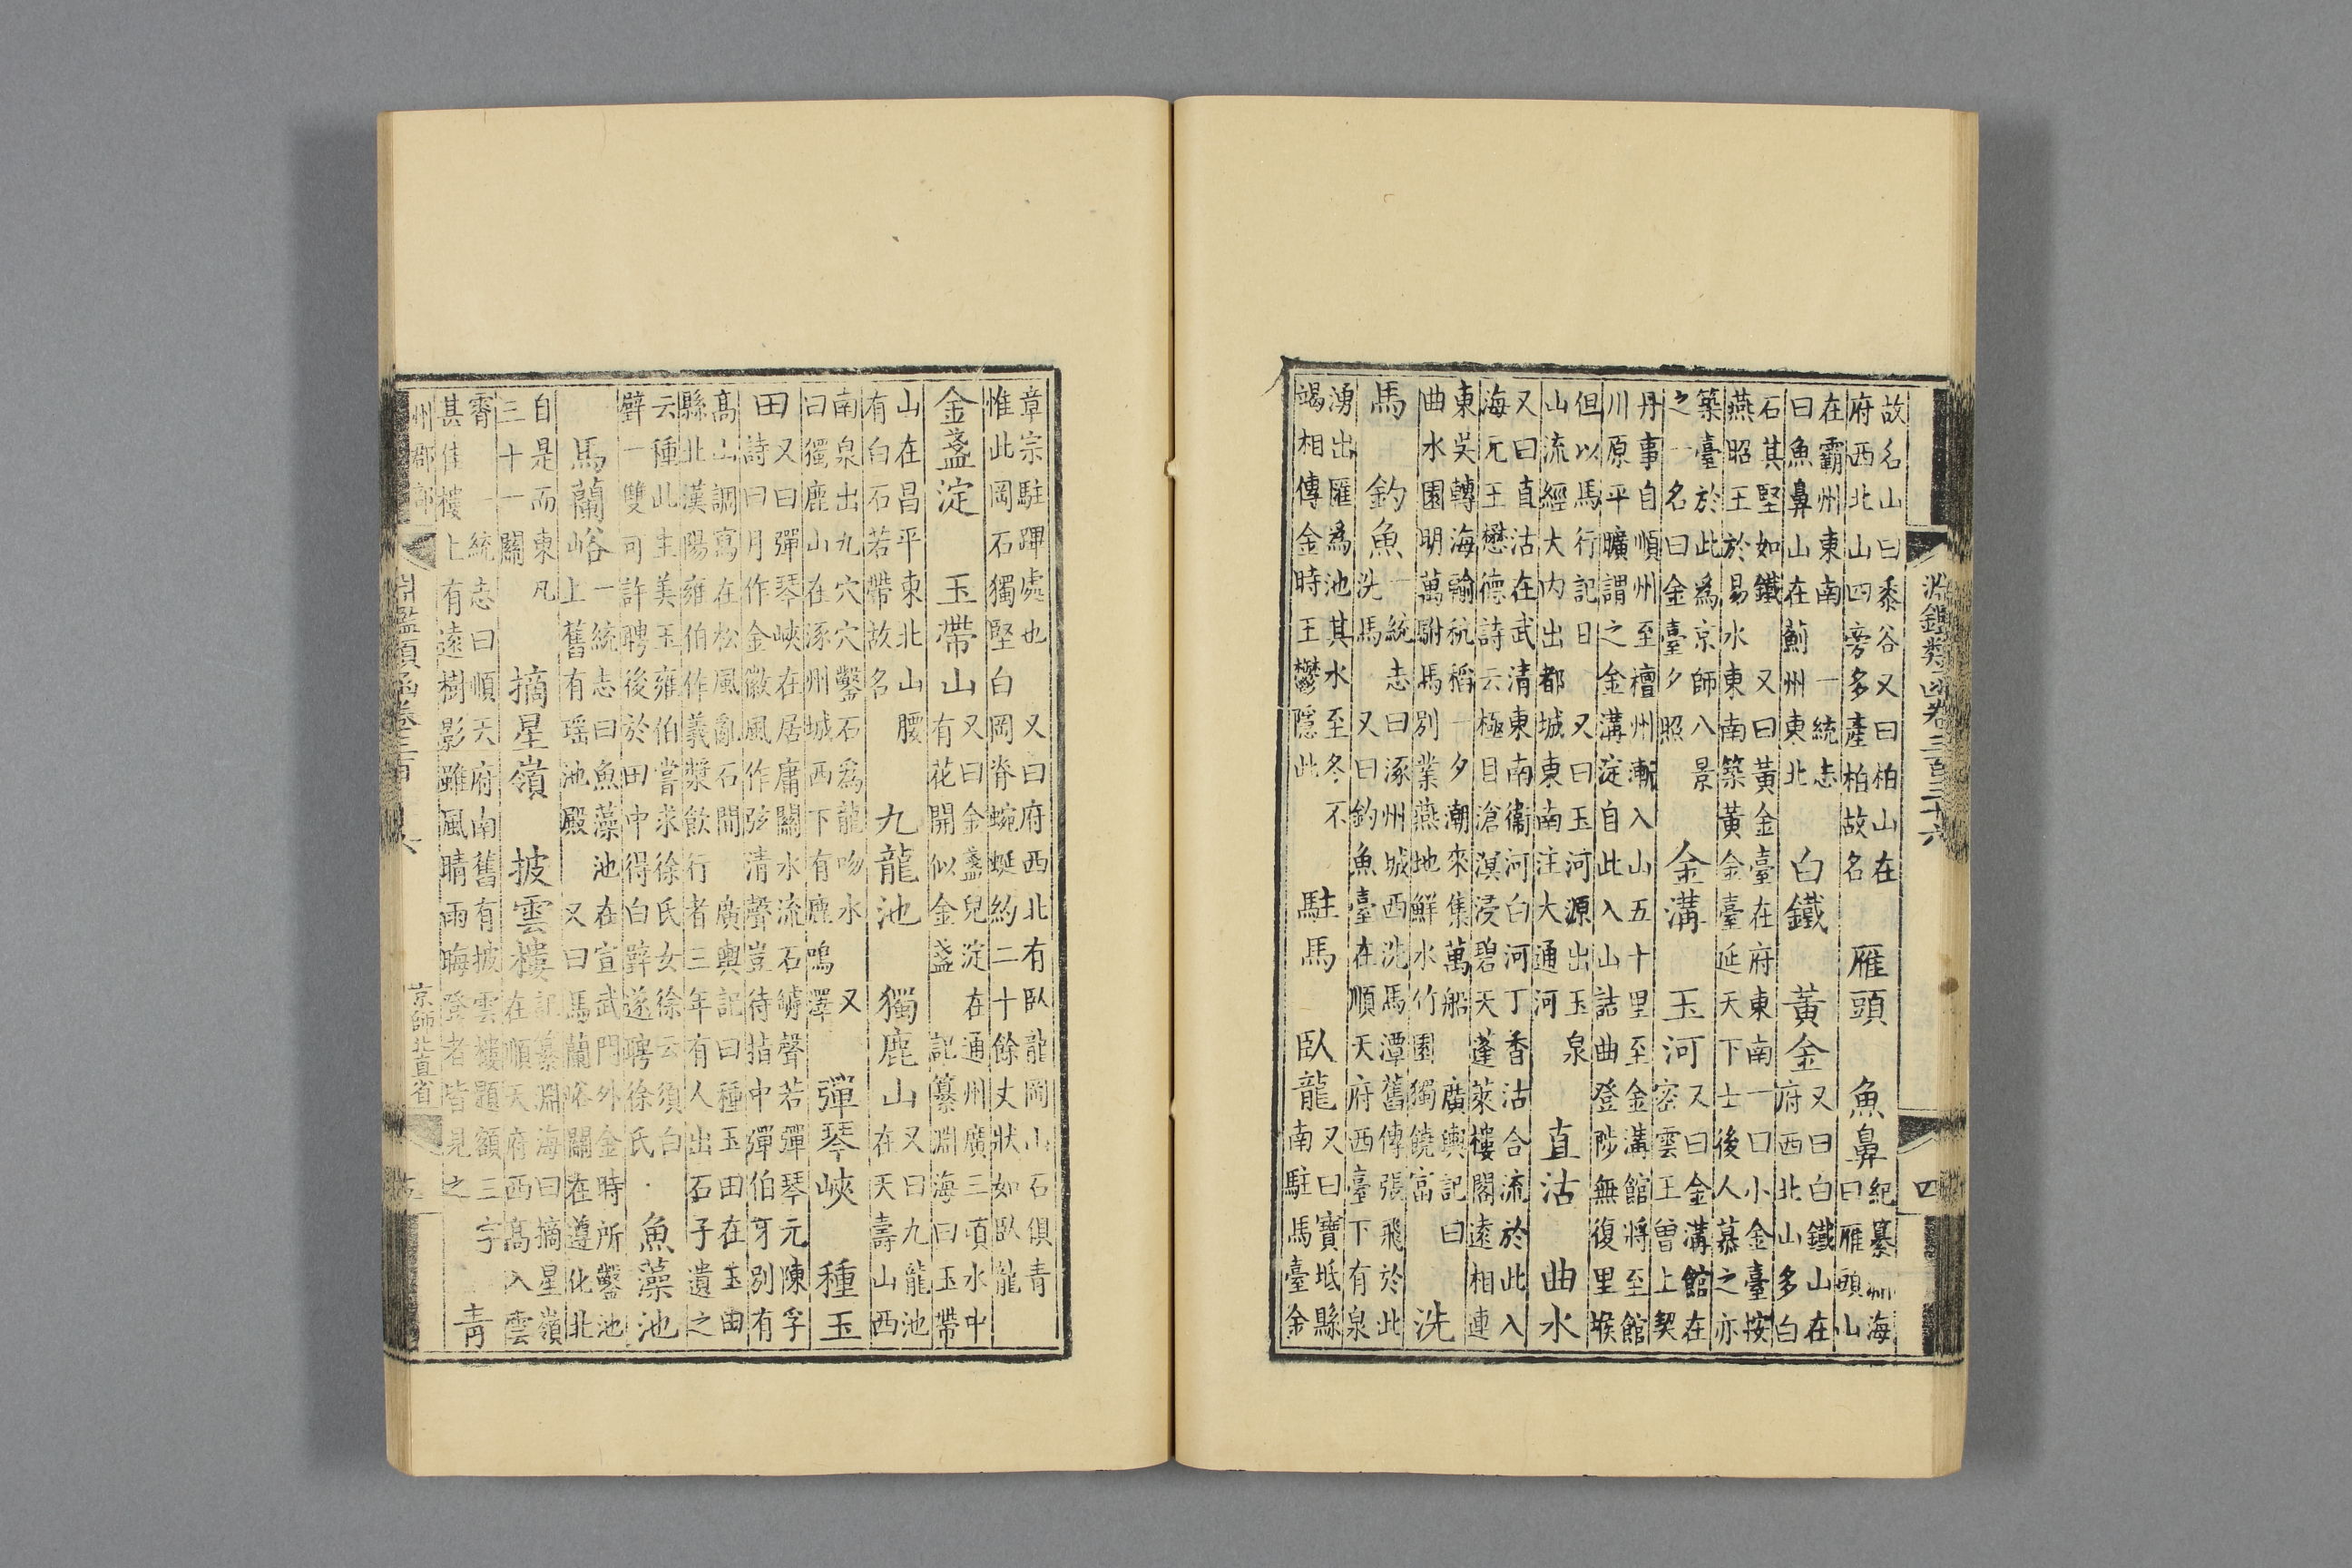 淵鑑類函卷三百三十六　四
故名山曰黍谷又曰柏山在
府西北山四旁多產柏故名
雁頭　魚鼻
紀纂州海
曰雁頭山
在霸州東南　一統志
曰魚鼻山在薊州東北
白鐵　黃金
又曰白鐵山在
府西北山多白
石其堅如鐵　又曰黃金臺在府東南一曰小金臺按
燕昭王於易水東南築黃金臺延天下士後人慕之亦
築臺於此爲京師八景
之一名曰金臺夕照
金溝　玉河
又曰金溝館在
密雲王曾上契
丹事自順州至檀州漸入山五十里至金溝館將至館
川原平曠謂之金溝淀自此入山詰曲登陟無復里堠
但以馬行記日　又曰玉河源出玉泉
山流經大内出都城東南注大通河
直沽　曲水
又曰直沽在武清東南衞河白河丁香沽合流於此入
海元王懋德詩云極目滄溟浸碧天蓬萊樓閣遠相連
東吳轉海輸秔稻一夕潮來集萬船　廣輿記曰
曲水園明萬駙馬別業燕地鮮水竹園獨饒富
洗
馬　釣魚
一統志曰涿州城西洗馬潭舊傳張飛於此
洗馬　又曰釣魚臺在順天府西臺下有泉
湧出匯爲池其水至冬不
竭相傳金時王鬱隱此
駐馬　臥龍
又曰寶坻縣
南駐馬臺金
章宗駐蹕處也　又曰府西北有臥龍岡山石俱青
惟此岡石獨堅白岡脊蜿蜒約二十餘丈狀如臥龍
金盞淀　玉帶山
又曰金盞兒淀在通州廣三頃水中
有花開似金盞　記纂淵海曰玉帶
山在昌平東北山腰
有白石若帶故名
九龍池　獨鹿山
又曰九龍池
在天壽山西
南泉出九穴穴鑿石爲龍吻水　又
曰獨鹿山在涿州城西下有鹿鳴澤
彈琴峽　種玉
田
又曰彈琴峽在居庸關水流石罅聲若彈琴元陳孚
詩曰月作金徽風作弦清聲豈待指中彈伯牙別有
高山調寫在松風亂石間　廣輿記曰種玉田在玉田
縣北漢陽雍伯作義漿飲行者三年有人出石子遺之
云種此生美玉雍伯嘗求徐氏女徐云須白
璧一雙可許聘後於田中得白璧遂聘徐氏
魚藻池
馬蘭峪
一統志曰魚藻池在宣武門外金時所鑿池
上舊有瑤池殿　又曰馬蘭峪關在遵化北
自是而東凡
三十一關
摘星嶺　披雲樓
記纂淵海曰摘星嶺
在順天府西高入雲
霄　一統志曰順天府南舊有披雲樓題額三字
甚佳樓上有遠樹影雖風晴雨晦登者皆見之
青
州郡部　淵鑑類函卷三百　京師北直省